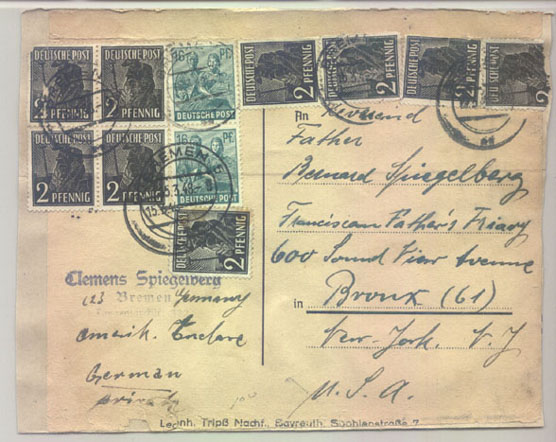 DEUTSCHE POST
2 PFENNIG
DEUTSCHE POST
2 PFENNIG
16 PF
DEUTSCHE POST
DEUTSCHE POST
2 PFENNIG
DEUTSCHE POST
2 PFENNIG
DEUTSCHE POST
2
DEUTSCHE POST
2
2 PFENNIG
2 PFENNIG
PF
DEUTSCHE POST
BREMEN 5
DEUTSCHE POST
2 PFENNIG
An Reverend
Father
Bernard Spiegelberg
Franciscan Father's Friary
600 Sound View Avenue
in Bronx (61)
New-York. N.Y
U.S.A.
Clemens Spiegelberg
(23 Bremen Germany
amerik. Enclave
German
private
Leonh. Tripß Nachf., Bayreuth, Sophienstraße 7